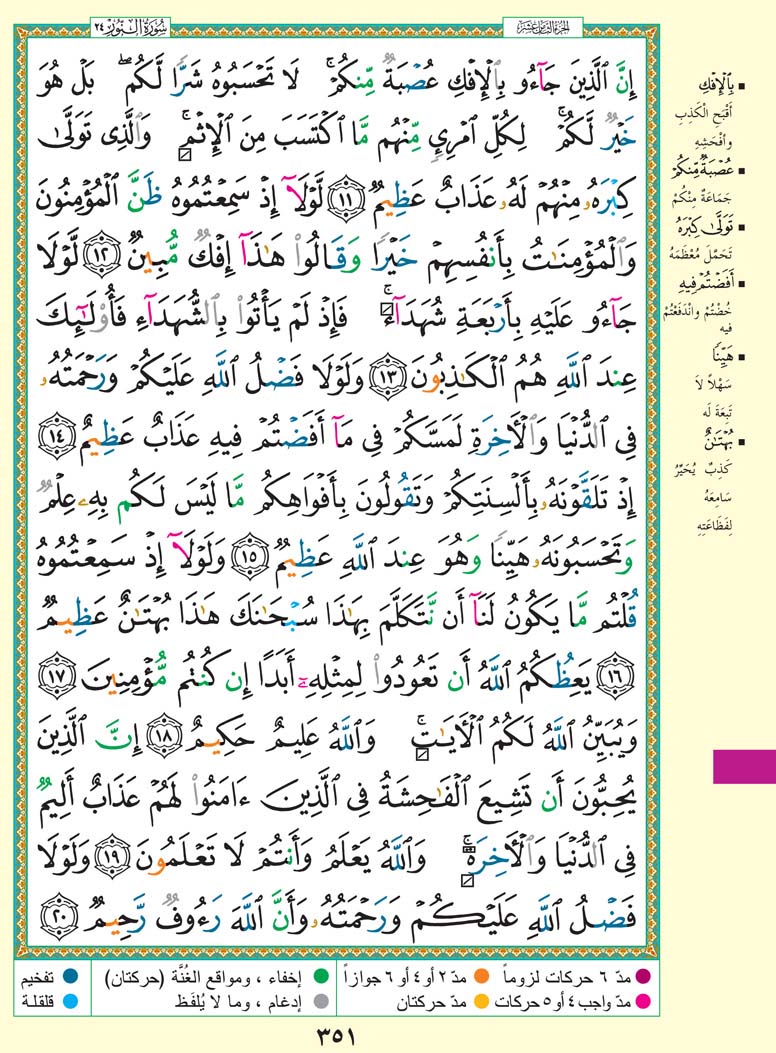 سُورَةُ النُّورِ ٢٤
الجزء الثامن عشر
إِنَّ ٱلَّذِينَ جَآءُو بِٱلْإِفْكِ عُصْبَةٌ مِّنكُمْ ۚ لَا تَحْسَبُوهُ شَرًّا لَّكُم ۖ بَلْ هُوَ
خَيْرٌ لَّكُمْ ۚ لِكُلِّ ٱمْرِئٍ مِّنْهُم مَّا ٱكْتَسَبَ مِنَ ٱلْإِثْمِ ۚ وَٱلَّذِى تَوَلَّىٰ
كِبْرَهُۥ مِنْهُمْ لَهُۥ عَذَابٌ عَظِيمٌ ﴿١١﴾ لَّوْلَآ إِذْ سَمِعْتُمُوهُ ظَنَّ ٱلْمُؤْمِنُونَ
وَٱلْمُؤْمِنَٰتُ بِأَنفُسِهِمْ خَيْرًا وَقَالُوا۟ هَٰذَآ إِفْكٌ مُّبِينٌ ﴿١٢﴾ لَّوْلَا
جَآءُو عَلَيْهِ بِأَرْبَعَةِ شُهَدَآءَ ۚ فَإِذْ لَمْ يَأْتُوا۟ بِٱلشُّهَدَآءِ فَأُو۟لَٰٓئِكَ
عِندَ ٱللَّهِ هُمُ ٱلْكَٰذِبُونَ ﴿١٣﴾ وَلَوْلَا فَضْلُ ٱللَّهِ عَلَيْكُمْ وَرَحْمَتُهُۥ
فِى ٱلدُّنْيَا وَٱلْءَاخِرَةِ لَمَسَّكُمْ فِى مَآ أَفَضْتُمْ فِيهِ عَذَابٌ عَظِيمٌ ﴿١٤﴾
إِذْ تَلَقَّوْنَهُۥ بِأَلْسِنَتِكُمْ وَتَقُولُونَ بِأَفْوَاهِكُم مَّا لَيْسَ لَكُم بِهِۦ عِلْمٌ
وَتَحْسَبُونَهُۥ هَيِّنًا وَهُوَ عِندَ ٱللَّهِ عَظِيمٌ ﴿١٥﴾ وَلَوْلَآ إِذْ سَمِعْتُمُوهُ
قُلْتُم مَّا يَكُونُ لَنَآ أَن نَّتَكَلَّمَ بِهَٰذَا سُبْحَٰنَكَ هَٰذَا بُهْتَٰنٌ عَظِيمٌ
﴿١٦﴾ يَعِظُكُمُ ٱللَّهُ أَن تَعُودُوا۟ لِمِثْلِهِۦٓ أَبَدًا إِن كُنتُم مُّؤْمِنِينَ ﴿١٧﴾
وَيُبَيِّنُ ٱللَّهُ لَكُمُ ٱلْءَايَٰتِ ۚ وَٱللَّهُ عَلِيمٌ حَكِيمٌ ﴿١٨﴾ إِنَّ ٱلَّذِينَ
يُحِبُّونَ أَن تَشِيعَ ٱلْفَٰحِشَةُ فِى ٱلَّذِينَ ءَامَنُوا۟ لَهُمْ عَذَابٌ أَلِيمٌ
فِى ٱلدُّنْيَا وَٱلْءَاخِرَةِ ۚ وَٱللَّهُ يَعْلَمُ وَأَنتُمْ لَا تَعْلَمُونَ ﴿١٩﴾ وَلَوْلَا
فَضْلُ ٱللَّهِ عَلَيْكُمْ وَرَحْمَتُهُۥ وَأَنَّ ٱللَّهَ رَءُوفٌ رَّحِيمٌ ﴿٢٠﴾
بِٱلْإِفْكِ
أَقْبَحِ الْكَذِبِ
وأَفْحَشِهِ
عُصْبَةٌ مِّنكُمْ
جَمَاعَةٌ مِنْكُمْ
تَوَلَّىٰ كِبْرَهُ
تَحَمَّلَ مُعْظَمَهُ
أَفَضْتُمْ فِيهِ
خُضْتُمْ وانْدَفَعْتُمْ
فيه
هَيِّنًا
سَهْلاً لاَ
تَبِعَةَ لَه
بُهْتَٰنٌ
كَذِبٌ يُحَيِّرُ
سَامِعَهُ
لِفَظَاعَتِهِ
مدّ ٦ حركات لزوماً
مدّ ٢ أو ٤ أو ٦ جوازاً
إخفاء ، ومواقع الغُنَّة (حركتان)
تفخيم
مدّ واجب ٤ أو ٥ حركات
مدّ حركتان
إدغام ، وما لا يُلفَظ
قلقلة
٣٥١